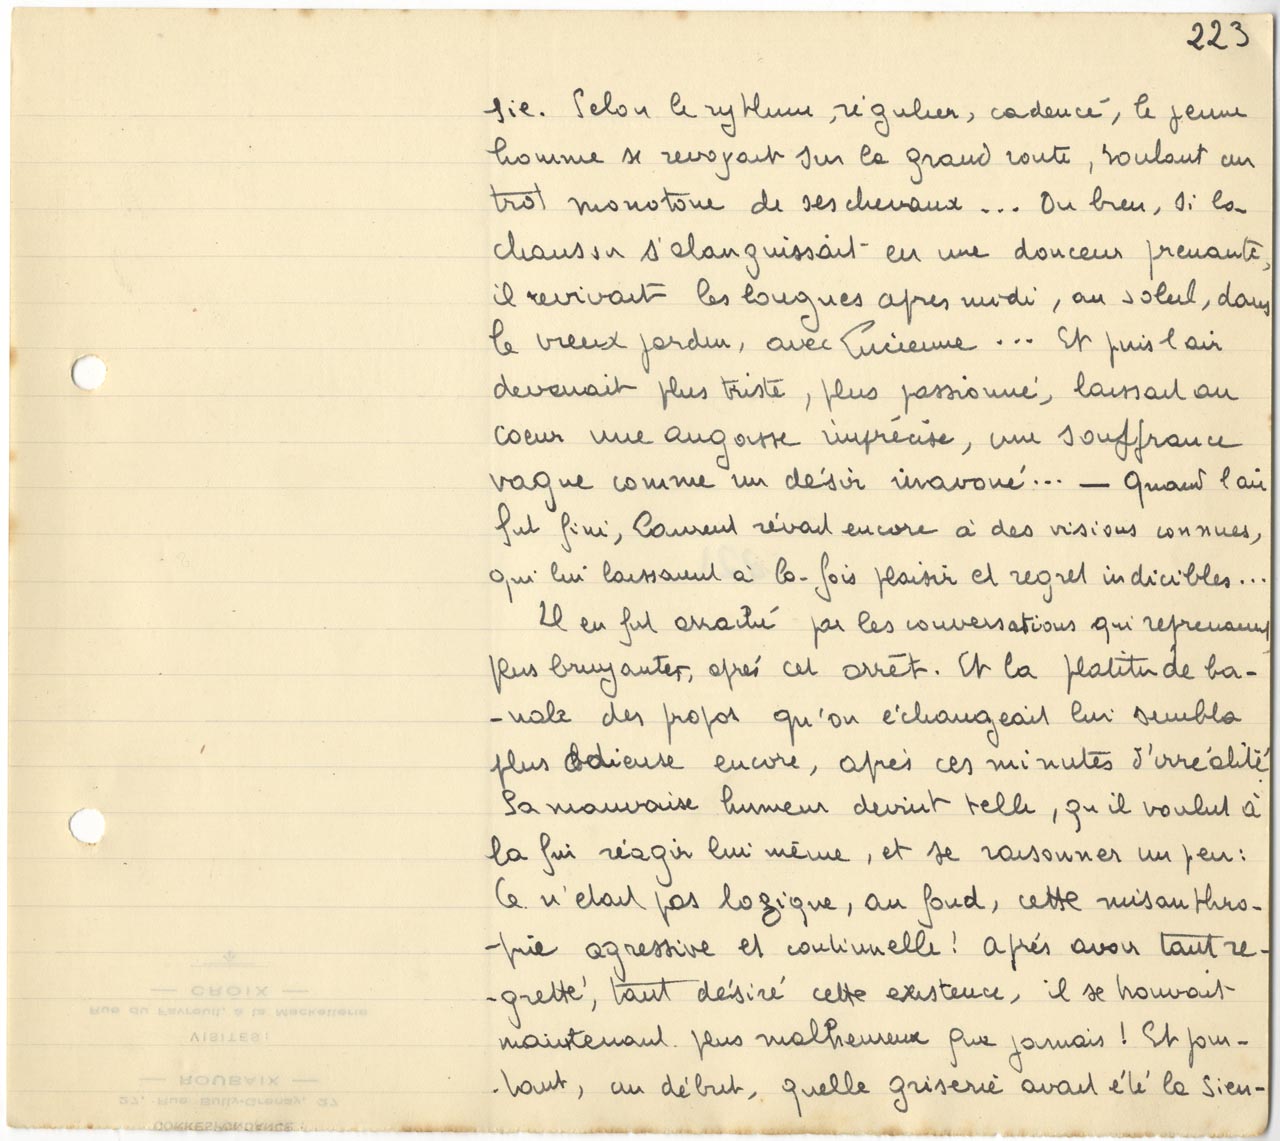 223
sie. Selon le rythme, régulier, cadencé, le jeune
homme se revoyait sur la grand route, roulant au
trot monotone de ses chevaux... Ou bien, si la
chanson s'alanguissait en une douceur prenante,
il revivait les longues après midi, au soleil, dans
le vieux jardin, avec Lucienne... Et puis l'air
devenait plus triste, plus passionné, laissait au
coeur une angoisse imprécise, une souffrance
vague comme un désir inavoué... — Quand l'air
fut fini, Laurent rêvait encore à des visions connues,
qui lui laissaient à la fois plaisir et regret indicibles...
Il en fut arraché par les conversations qui reprenaient
plus bruyantes, après cet arrêt. Et la platitude ba-
-nale des propos qu'on échangeait lui sembla
plus odieuse encore, après ces minutes d'irréalité.
Sa mauvaise humeur devint telle, qu'il voulut à
la fin réagir lui même, et se raisonner un peu:
Ce n'était pas logique, au fond, cette misanthro-
-pie agressive et continuelle! Après avoir tant re-
-gretté, tant désiré cette existence, il se trouvait
maintenant plus malheureux que jamais! Et pour-
-tant, au début, quelle griserie avait été la sien-
— CROIX —
Rue du Favreuil, à la Mackellerie
VISITES:
— ROUBAIX —
27, Rue Bully-Grenay, 27
CORRESPONDANCE: